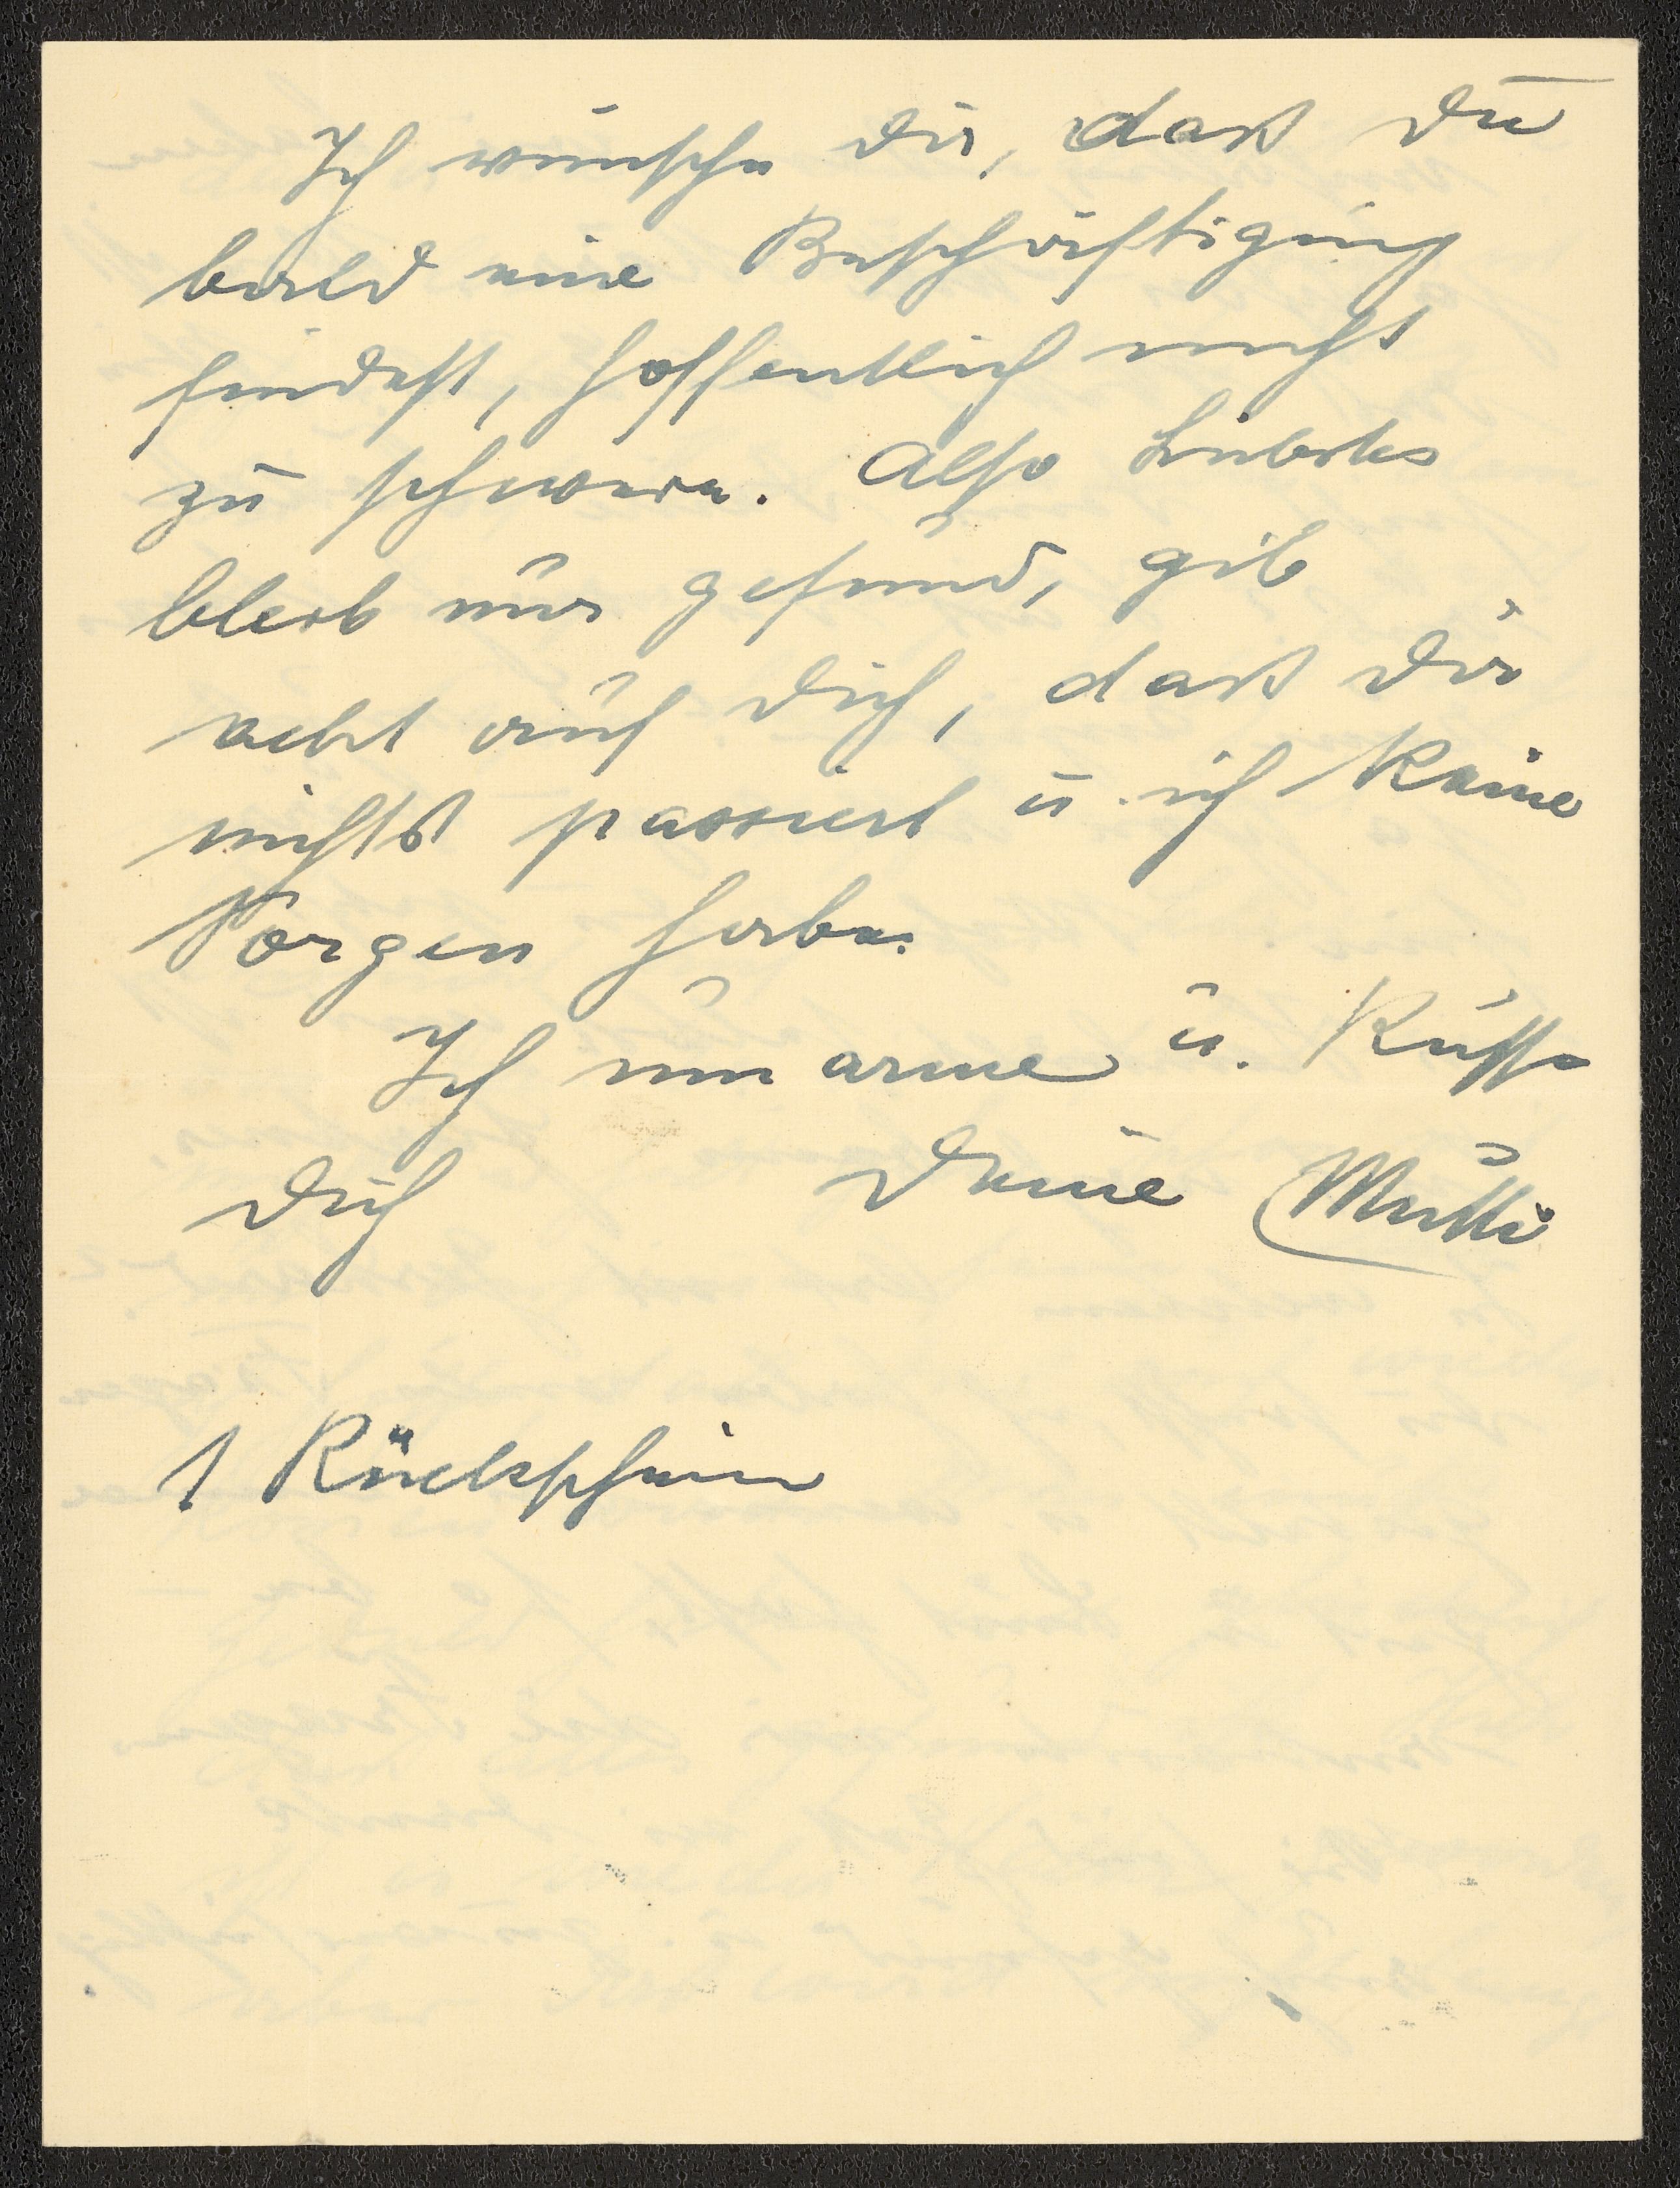 Ich wünsche Dir, dass Du
bald eine Beschäftigung
findest, hoffentlich nicht
zu schwere. Also Liebstes
bleib nur gesund, gib
acht auf Dich, dass Dir
nichts passiert u. ich keine
Sorgen habe.
Ich umarme u. küsse
Dich Deine Mutti
1 Rückschein